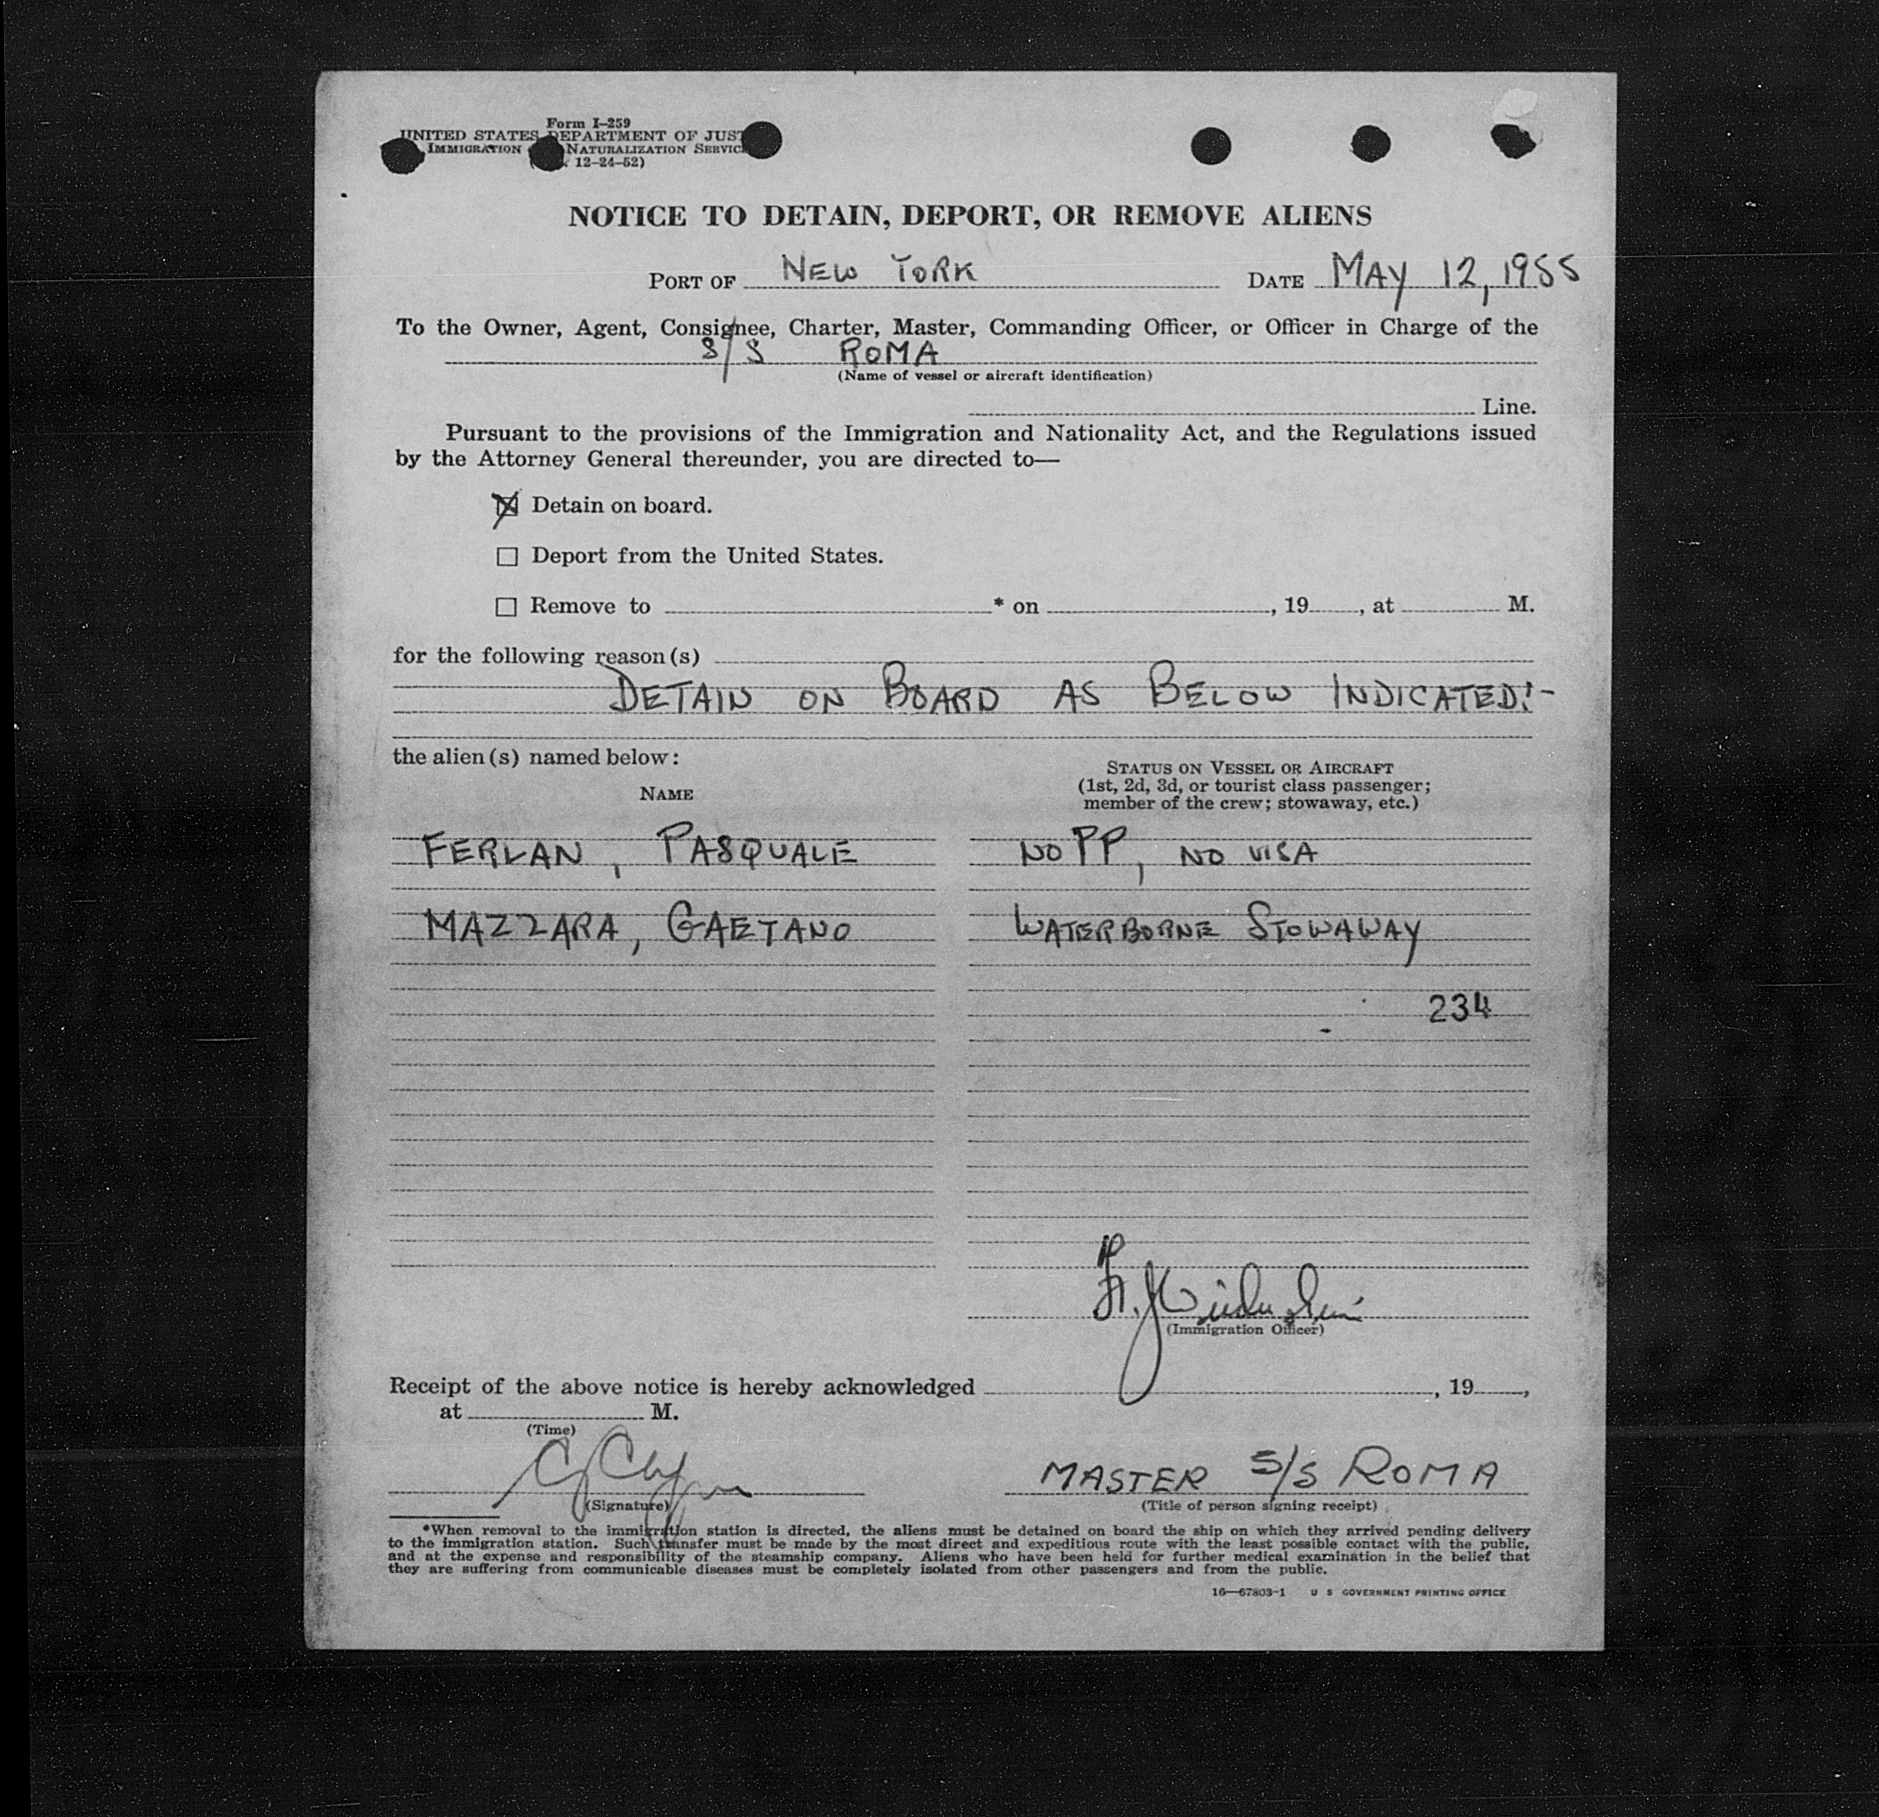 Form I-259
UNITED STATES DEPARTMENT OF JUST
IMMIGRATION NATURALIZATION SERVIC
12-24-52)
NOTICE TO DETAIN, DEPORT, OR REMOVE ALIENS
PORT OF NEW YORK DATE MAY 12, 1955
To the Owner, Agent, Consignee, Charter, Master, Commanding Officer, or Officer in Charge of the
S/S ROMA
(Name of vessel or aircraft identification)
Line.
Pursuant to the provisions of the Immigration and Nationality Act, and the Regulations issued
by the Attorney General thereunder, you are directed to—
Detain on board.
Deport from the United States.
Remove to * on , 19 , at M.
for the following reason(s)
DETAIN ON BOARD AS BELOW INDICATED:-
the alien(s) named below:
STATUS ON VESSEL OR AIRCRAFT
(1st, 2d, 3d, or tourist class passenger;
member of the crew; stowaway, etc.)
NAME
FERLAN, PASQUALE NO PP, NO VISA
MAZZARA, GAETANO WATERBORNE STOWAWAY
234
(Immigration Officer)
Receipt of the above notice is hereby acknowledged , 19 ,
at M.
(Time)
MASTER S/S ROMA
(Signature) (Title of person signing receipt)
*When removal to the immigration station is directed, the aliens must be detained on board the ship on which they arrived pending delivery
to the immigration station. Such transfer must be made by the most direct and expeditious route with the least possible contact with the public,
and at the expense and responsibility of the steamship company. Aliens who have been held for further medical examination in the belief that
they are suffering from communicable diseases must be completely isolated from other passengers and from the public.
16—67803-1 U S GOVERNMENT PRINTING OFFICE